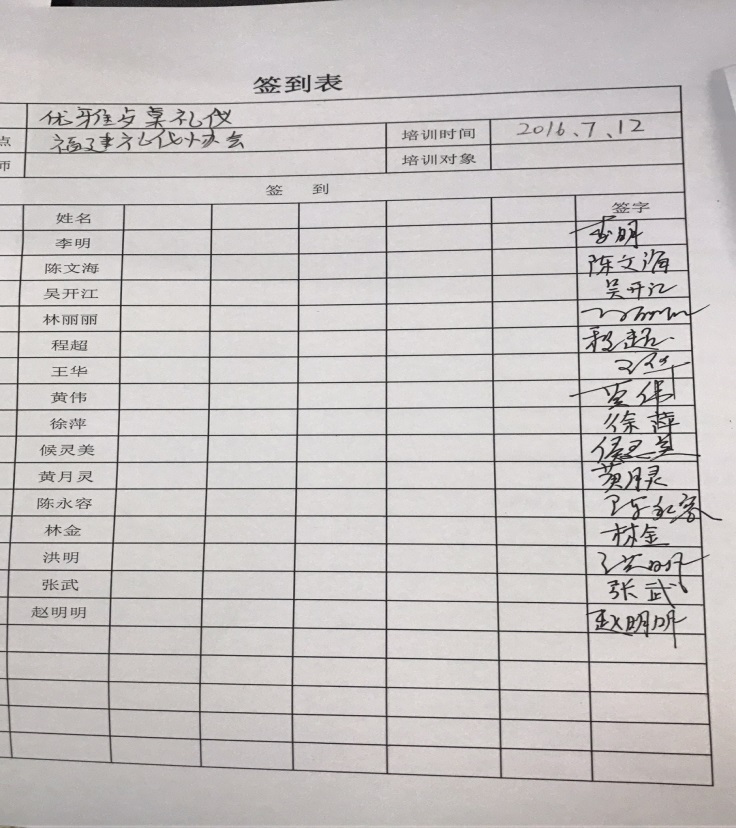 签到表
优雅与桌礼仪
点 福建礼仪协会 培训时间 2016.7.12
师 培训对象
签 到
姓名 签字
李明 李明
陈文海 陈文海
吴开江 吴开江
林丽丽
程超 程超
王华 王华
黄伟 黄伟
徐萍 徐萍
候灵美 候灵美
黄月灵 黄月灵
陈永容 陈永容
林金 林金
洪明 洪明
张武 张武
赵明明 赵明明